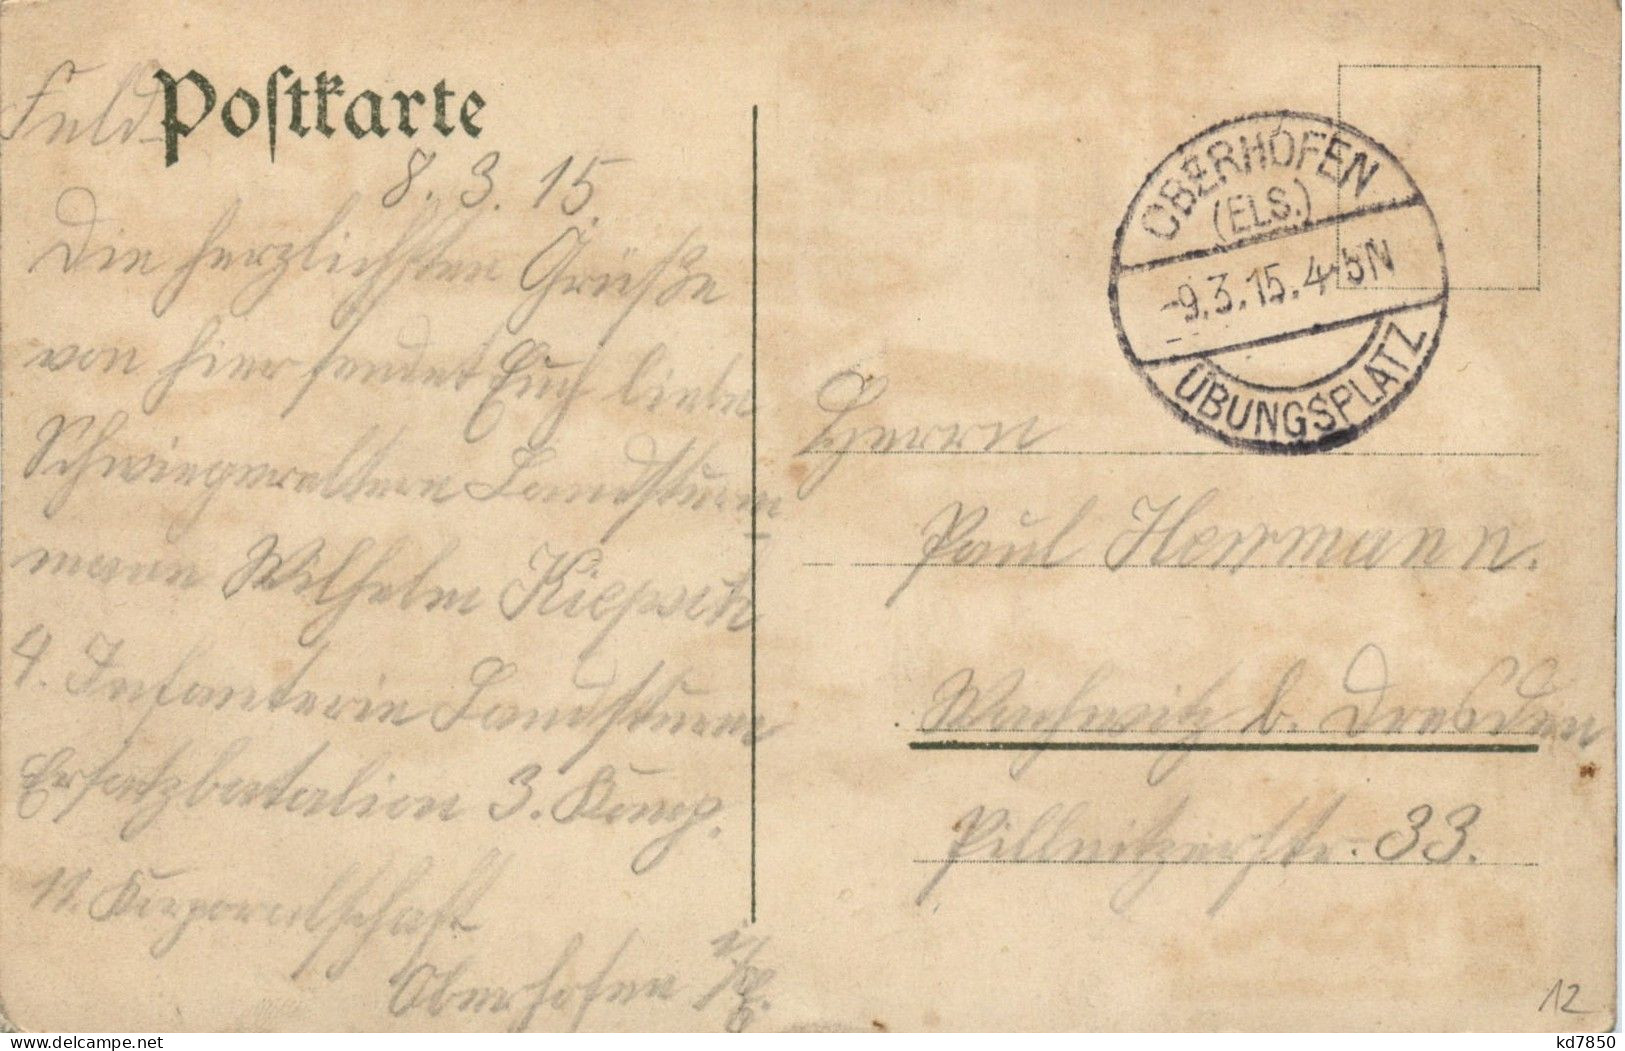 Feld-
Postkarte
8. 3. 15.
Die herzlichsten Grüße
von hier sendet Euch liebe
Schwiegereltern Landsturm-
mann Wilhelm
4. Infanterie Landsturm
Ersatzbatalion 3. Komp.
11. Korporalschaft
Oberhofen i/E.
OBERHOFEN
(ELS.)
-9.3.15.4-5N
ÜBUNGSPLATZ
Herrn
Paul Herrmann.
Wachwitz b. Dresden
Pillnitzerstr. 33.
12
kd7850